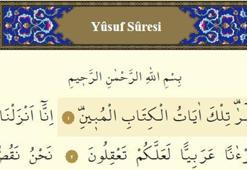 Yûsuf Sûresi
بِسْمِ اللّٰهِ الرَّحْمٰنِ الرَّحٖيمِ
تِلْكَ اٰيَاتُ الْكِتَابِ الْمُبٖينِ ۝١ اِنَّٓا اَنْزَلْنَا
عَرَبِيًّا لَعَلَّكُمْ تَعْقِلُونَ ۝٢ نَحْنُ نَقُصُّ